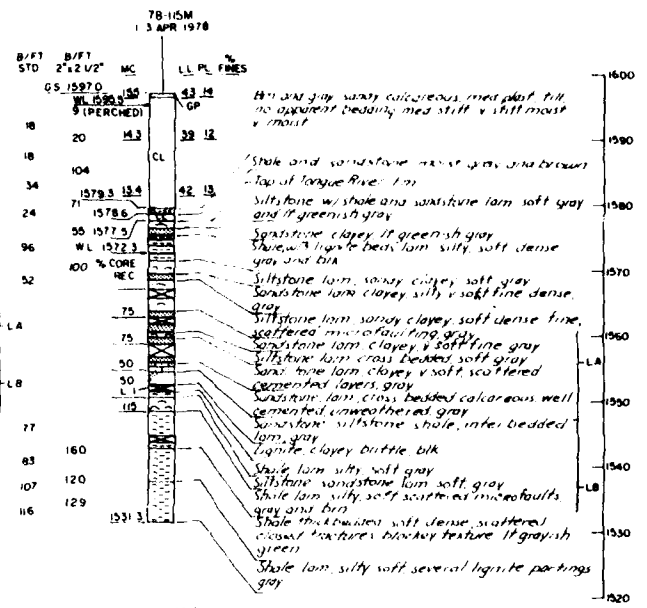 78-115M
13 APR 1978
B/FT STD
B/FT 2"x2 1/2"
MC
LL PL
% FINES
GS 1597.0
15.5
43 14
WL 1595.5
9 (PERCHED)
GP
18
20
14.3
39 12
CL
18
104
34
1579.3
13.4
42 13
71
24
1578.6
55 1577.5
96
WL 1572.3
100 % CORE REC
52
75
LA
75
50
LB
50
115
77
83
160
107
120
116
129
1531.3
1600
1590
1580
1570
1560
LA
1550
1540
LB
1530
1520
Brn and gray sandy calcareous, med plast, till,
no apparent bedding med stiff v stiff moist
v moist
Shale and sandstone moist gray and brown
Top of Tongue River fm
Siltstone w/shale and sandstone lam soft gray
and lt greenish gray
Sandstone clayey lt greenish gray
Shale, w/ lignite beds lam silty, soft dense
gray and blk
Siltstone lam, sandy clayey soft gray
Sandstone lam clayey, silty v soft fine dense,
gray
Siltstone lam, sandy clayey, soft dense fine,
scattered microfaulting gray
Sandstone lam, clayey, v soft fine gray
Siltstone lam cross bedded, soft gray
Sandstone lam clayey v soft, scattered
cemented layers, gray
Sandstone, lam, cross bedded calcareous well
cemented, unweathered, gray
Sandstone siltstone shale, interbedded
lam, gray
Lignite, clayey brittle, blk
Shale, lam silty, soft gray
Siltstone sandstone lam soft, gray
Shale lam, silty, soft scattered microfaults,
gray and brn
Shale thick bedded soft dense, scattered
closed fractures blockey texture lt grayish
green
Shale lam, silty soft several lignite partings
gray